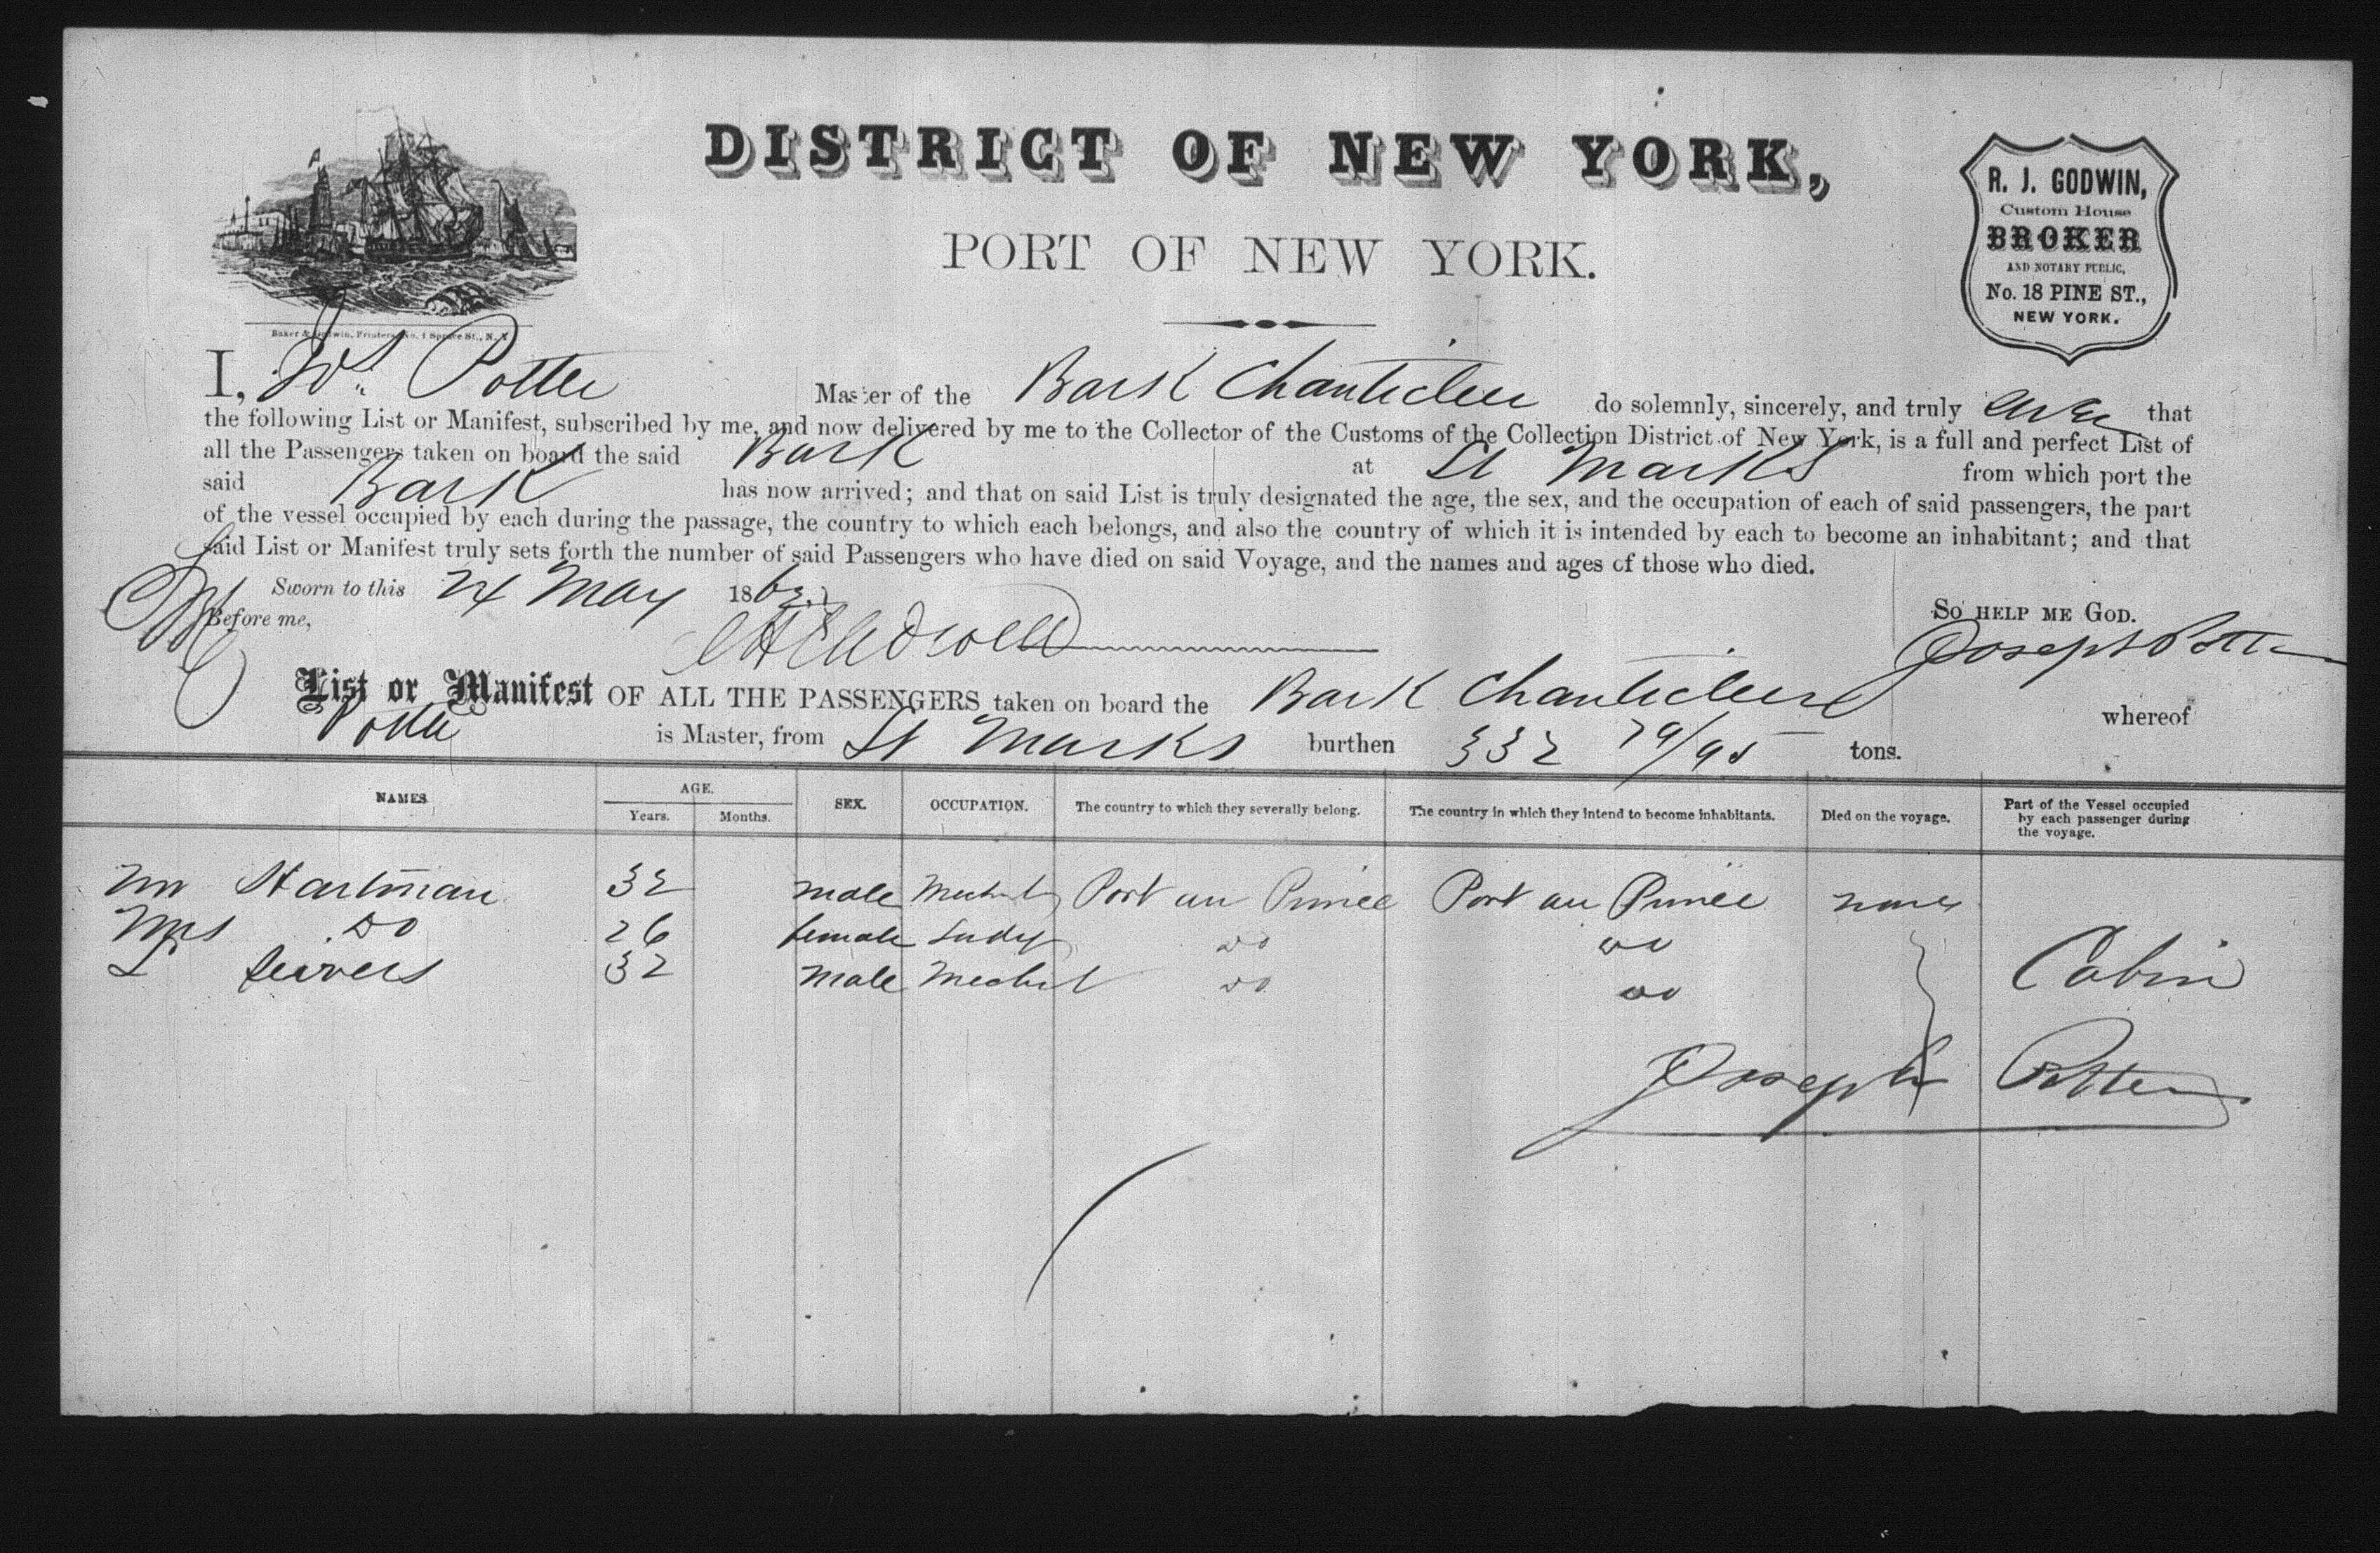 DISTRICT OF NEW YORK,
PORT OF NEW YORK.
R. J. GODWIN,
Custom House
BROKER
AND NOTARY PUBLIC,
No. 18 PINE ST.,
NEW YORK.
Baker & Godwin, Printers, No. 1 Spruce St., N. Y.
I, Jos. Potter Master of the Bark Chanticleer do solemnly, sincerely, and truly that
the following List or Manifest, subscribed by me, and now delivered by me to the Collector of the Customs of the Collection District of New York, is a full and perfect List of
all the Passengers taken on board the said Bark at St Marks from which port the
said Bark has now arrived; and that on said List is truly designated the age, the sex, and the occupation of each of said passengers, the part
of the vessel occupied by each during the passage, the country to which each belongs, and also the country of which it is intended by each to become an inhabitant; and that
said List or Manifest truly sets forth the number of said Passengers who have died on said Voyage, and the names and ages of those who died.
Sworn to this 24 May 186
Before me,
SO HELP ME GOD.
Joseph Potter
List or Manifest OF ALL THE PASSENGERS taken on board the Bark Chanticleer whereof
Potter is Master, from St Marks burthen 332 79/95 tons.
NAMES AGE. SEX. OCCUPATION. The country to which they severally belong. The country in which they intend to become inhabitants. Died on the voyage. Part of the Vessel occupied by each passenger during the voyage.
Years. Months.
Mr Hartman 32 male Port au Prince Port au Prince none
Mrs Do 26 female Lady do do
L 32 male do do Cabin
Joseph Potter